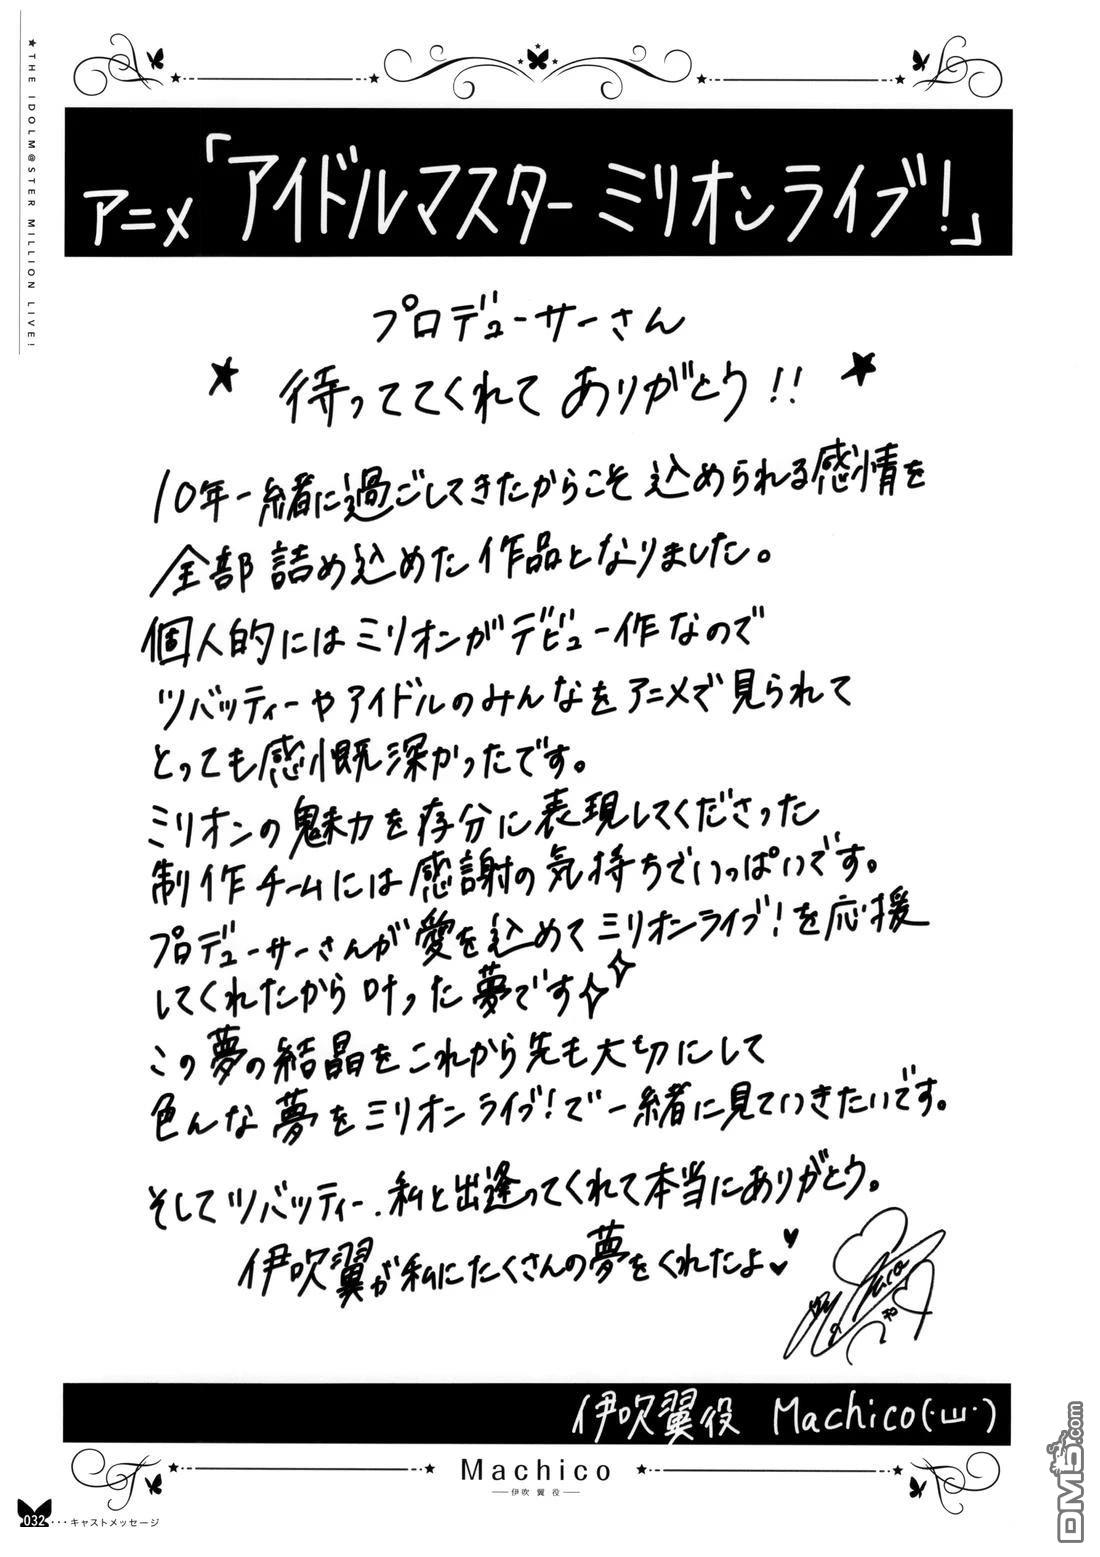 ★THE IDOLM@STER MILLION LIVE!
アニメ「アイドルマスター ミリオンライブ!」
プロデューサーさん
★ 待っててくれて ありがとう!! ★
10年一緒に過ごしてきたからこそ 込められる感情を
全部 詰め込めた 作品となりました。
個人的にはミリオンがデビュー作なので
ツバッティーやアイドルのみんなをアニメで見られて
とっても感慨深かったです。
ミリオンの魅力を存分に表現してくださった
制作チームには感謝の気持ちでいっぱいです。
プロデューサーさんが愛を込めてミリオンライブ!を応援
してくれたから叶った夢です✧✧
この夢の結晶をこれから先も大切にして
色んな夢をミリオンライブ!で一緒に見ていきたいです。
そしてツバッティー.私と出逢ってくれて本当にありがとう。
伊吹翼が私にたくさんの夢をくれたよ♥♥
伊吹翼役 Machico(・ш・)
Machico
伊吹 翼 役
032 ・・・キャストメッセージ
DM5.com